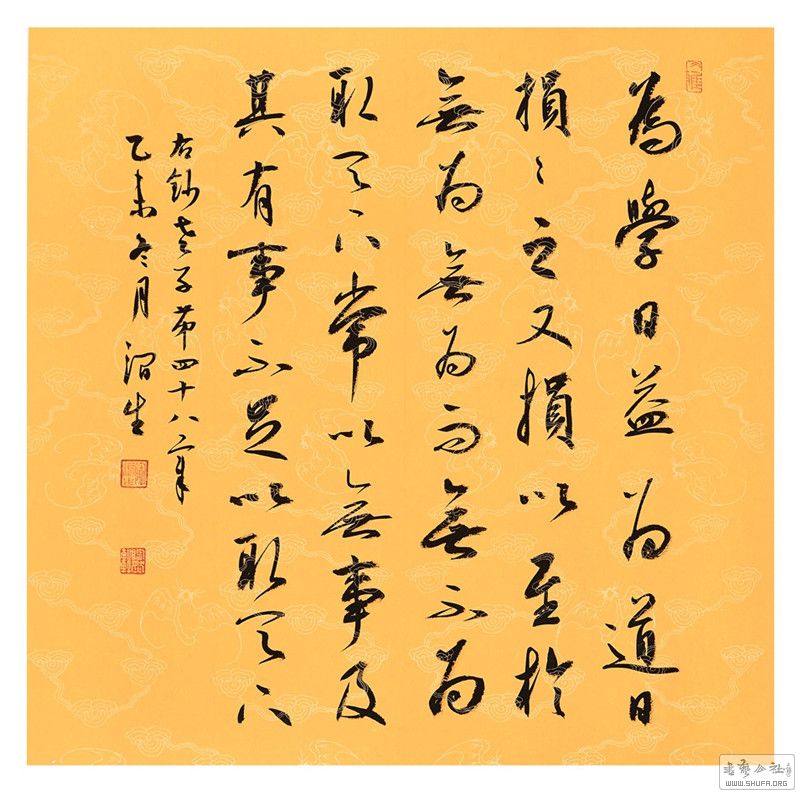 為學日益為道日
損〻之又損以至於
無為無為而無不為
取天下常以無事及
其有事不足以取天下
右鈔老子第四十八章
乙未冬月
书艺公社
WWW.SHUFA.ORG